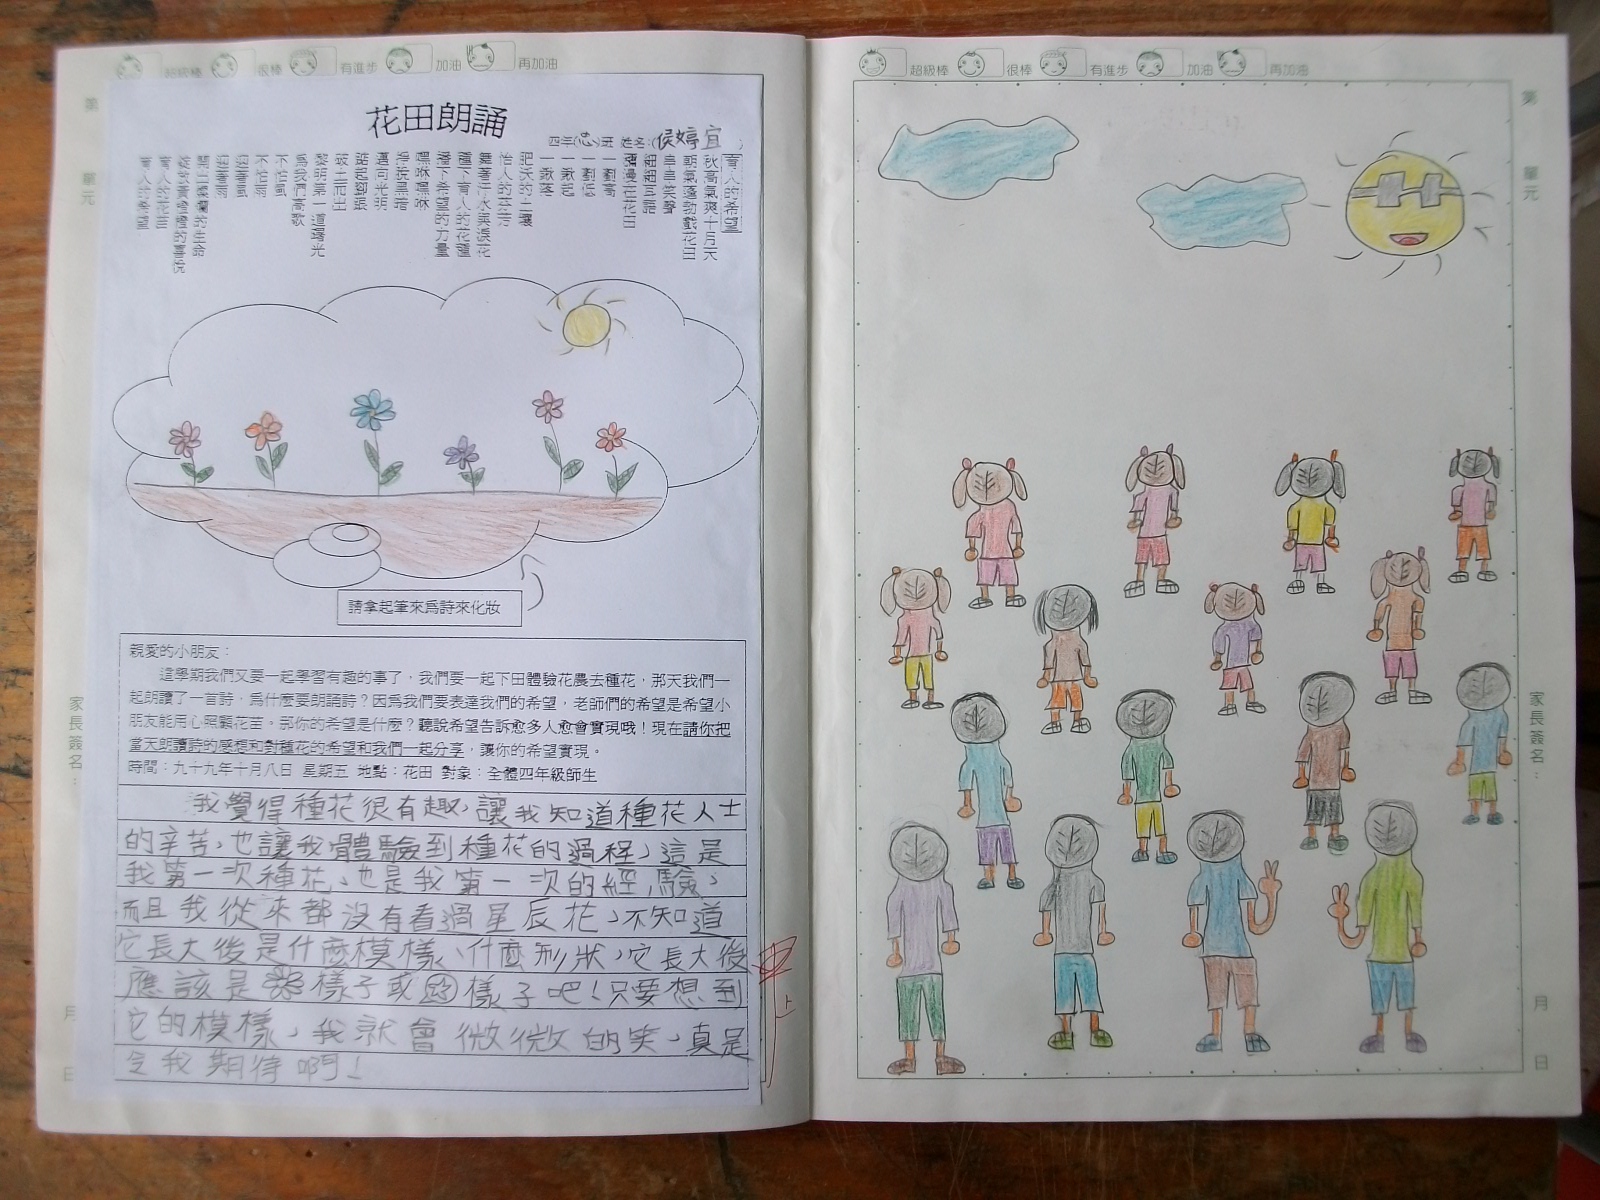 超級棒 很棒 有進步 加油 再加油
花田朗誦
四年(3)班 姓名:(侯婷宜)
育人的希望
秋高氣爽十月天
朝氣蓬勃戲花田
串串笑聲
細細耳語
瀰漫在花田
一劃高
一劃低
一鍬起
一鍬落
肥沃的土壤
怡人的芬芳
舞著汗水與淚花
種下育人的花種
播下希望的力量
嘿咻嘿咻
掙脫黑暗
邁向光明
踮起腳跟
破土而出
黎明第一道曙光
為我們高歌
不怕風
不怕雨
迎著風
迎著雨
開出燦爛的生命
育人的花苗
育人的希望
請拿起筆來為詩來化妝
親愛的小朋友:
這學期我們又要一起學習有趣的事了,我們要一起下田體驗花農去種花,那天我們一
起朗讀了一首詩,為什麼要朗誦詩?因為我們要表達我們的希望,老師們的希望是希望小
朋友能用心照顧花苗。那你的希望是什麼?聽說希望告訴愈多人愈會實現哦!現在請你把
當天朗讀詩的感想和對種花的希望和我們一起分享,讓你的希望實現。
時間:九十九年十月八日 星期五 地點:花田 對象:全體四年級師生
我覺得種花很有趣,讓我知道種花人士
的辛苦,也讓我體驗到種花的過程,這是
我第一次種花,也是我第一次的經驗,
而且我從來都沒有看過星辰花,不知道
它長大後是什麼模樣、什麼形狀,它長大後
應該是樣子或樣子吧!只要想到
它的模樣,我就會微微的笑,真是
令我期待啊!
第 單元
家長簽名:
月 日
超級棒 很棒 有進步 加油 再加油
第 單元
家長簽名:
月 日